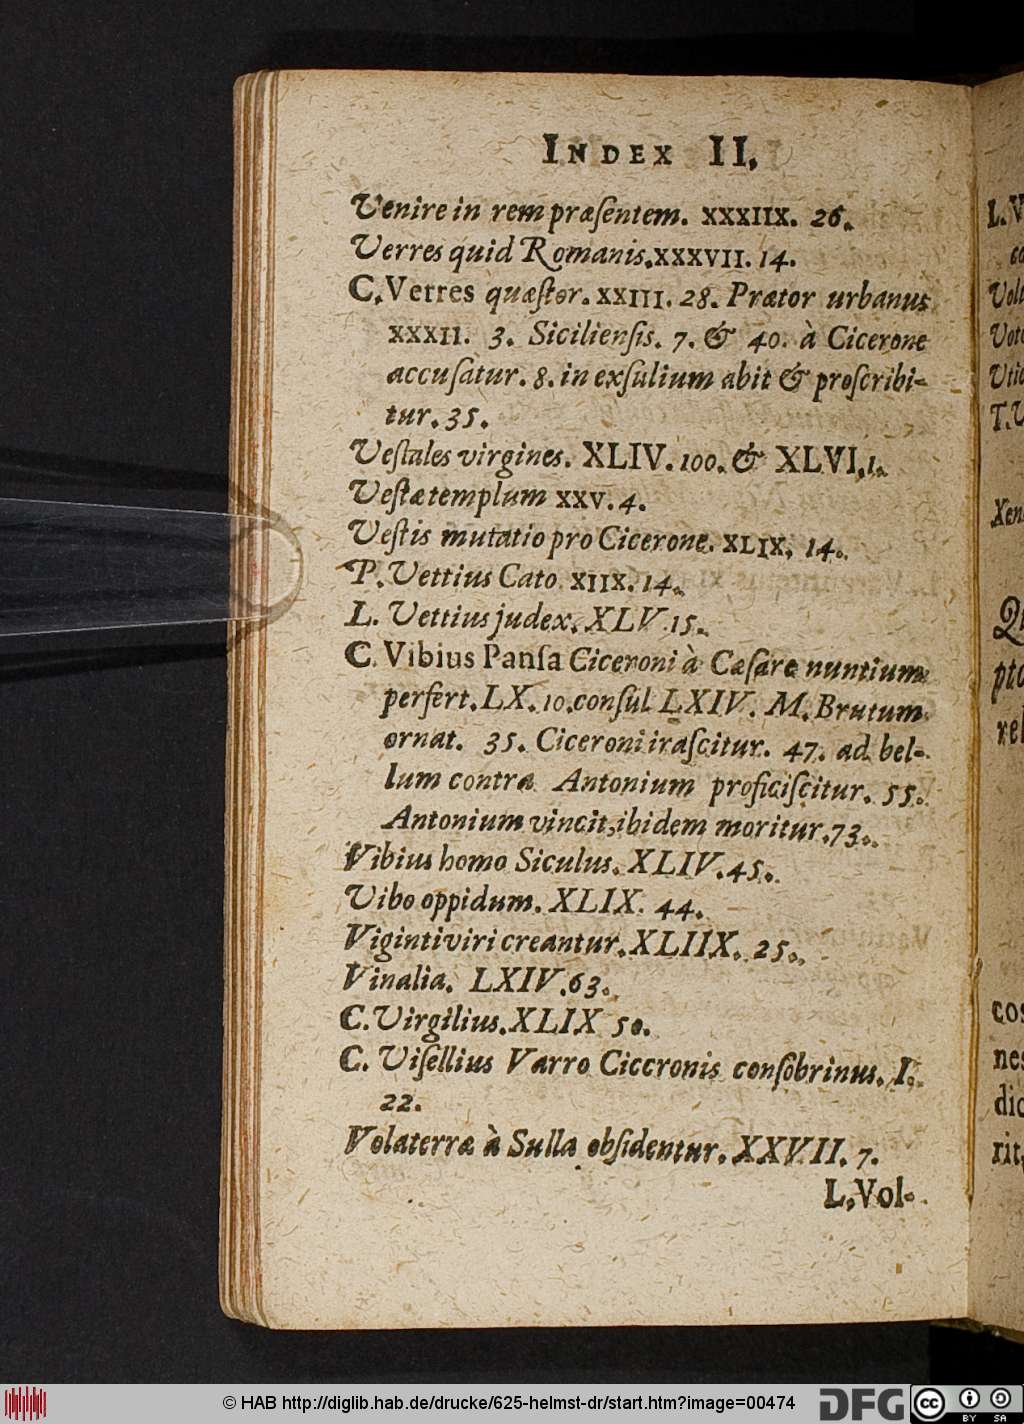 INDEX II.
Venire in rem præſentem. XXXIIX. 26.
Verres quid Romanis. XXXVII. 14.
C. Verres quæſtor. XXIII. 28. Prætor urbanus
XXXII. 3. Sicilienſis. 7. & 40. à Cicerone
accuſatur. 8. in exſulium abit & proſcribi-
tur. 35.
Veſtales virgines. XLIV. 100. & XLVI. 1.
Veſtæ templum XXV. 4.
Veſtis mutatio pro Cicerone. XLIX. 14.
P. Vettius Cato XIIX. 14.
L. Vettius judex. XLV 15.
C. Vibius Panſa Ciceroni à Cæſare nuntium
perfert. LX. 10. conſul LXIV. M. Brutum
ornat. 35. Ciceroni iraſcitur. 47. ad bel-
lum contra Antonium proficiſcitur. 55.
Antonium vincit, ibidem moritur. 73.
Vibius homo Siculus. XLIV. 45.
Vibo oppidum. XLIX. 44.
Vigintiviri creantur. XLIIX. 25.
Vinalia. LXIV. 63.
C. Virgilius. XLIX 50.
C. Viſellius Varro Ciceronis conſobrinus. I.
22.
Volaterræ à Sulla obſidentur. XXVII. 7.
L. Vol-
© HAB http://diglib.hab.de/drucke/625-helmst-dr/start.htm?image=00474
DFG
cc
BY SA